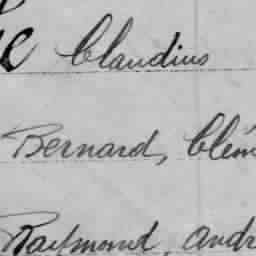 Claudius
Bernard, Clém
Raymond, andr